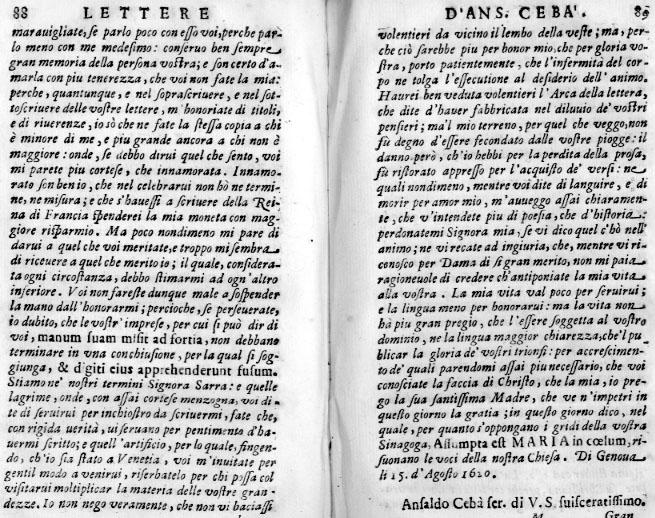 88 LETTERE
marauigliate, se parlo poco con esso voi, perche par-
lo meno con me medesimo: conseruo ben sempre
gran memoria della persona vostra; e son certo d'a-
marla con piu tenerezza, che voi non fate la mia:
perche, quantunque, e nel soprascriuere, e nel sot-
toscriuere delle vostre lettere, m'honoriate di titoli,
e di riuerenze, io sò che ne fate la stessa copia a chi
è minore di me, e piu grande ancora a chi non è
maggiore: onde, se debbo dirui quel che sento, voi
mi parete piu cortese, che innamorata. Innamo-
rato son ben io, che nel celebrarui non hò ne termi-
ne, ne misura; e che s'hauessi a scriuere della Rei-
na di Francia spenderei la mia moneta con mag-
giore risparmio. Ma poco nondimeno mi pare di
darui a quel che voi meritate, e troppo mi sembra
di riceuere a quel che merito io; il quale, considera-
ta ogni circostanza, debbo stimarmi ad ogn'altro
inferiore. Voi non fareste dunque male a sospender
la mano dall'honorarmi; percioche, se perseuerate,
io dubito, che le vostr' imprese, per cui si può dir di
voi, manum suam misit ad fortia, non debbano
terminare in vna conchiusione, per la qual si sog-
giunga, & digiti eius apprehenderunt fusum.
Stiamo ne' nostri termini Signora Sarra: e quelle
lagrime, onde, con assai cortese menzogna, voi di-
te di seruirui per inchiostro da scriuermi, fate che,
con rigida verità, vi seruano per pentimento d'ha-
uermi scritto; e quell'artificio, per lo quale, fingen-
do, ch'io sia stato a Venetia, voi m'inuitate per
gentil modo a venirui, riserbatelo per chi possa col
visitarui moltiplicar la materia delle vostre gran-
dezze. Io non nego veramente, che non vi baciassi
D'ANS. CEBA'. 89
volentieri da vicino il lembo della veste; ma, per-
che ciò sarebbe piu per honor mio, che per gloria vo-
stra, porto patientemente, che l'infermità del cor-
po ne tolga l'essecutione al desiderio dell'animo.
Haurei ben veduta volentieri l'Arca della lettera,
che dite d'hauer fabbricata nel diluuio de' vostri
pensieri; ma'l mio terreno, per quel che veggo, non
fù degno d'essere fecondato dalle vostre piogge: il
danno però, ch'io hebbi per la perdita della prosa,
fù ristorato appresso per l'acquisto de' versi: ne
quali nondimeno, mentre voi dite di languire, e di
morir per amor mio, m'auueggo assai chiaramen-
te, che v'intendete piu di poesia, che d'historia:
perdonatemi Signora mia, se vi dico quel c'hò nell'
animo; ne vi recate ad ingiuria, che, mentre vi ri-
conosco per Dama di sì gran merito, non mi paia
ragioneuole di credere ch'antiponiate la mia vita
alla vostra. La mia vita val poco per seruirui;
e la lingua meno per honorarui: ma la vita non
hà piu gran pregio, che l'essere soggetta al vostro
dominio, ne la lingua maggior chiarezza, che'l pu
blicar la gloria de' vostri trionfi: per accrescimen-
to de' quali parendomi assai piu necessario, che voi
conosciate la faccia di Christo, che la mia, io pre-
go la sua santissima Madre, che ve n'impetri in
questo giorno la gratia; in questo giorno dico, nel
quale, per quanto s'oppongano i gridi della vostra
Sinagoga, Assumpta est MARIA in cœlum, ri-
suonano le voci della nostra Chiesa. Di Genoua
li 15. d'Agosto 1620.
Ansaldo Cebà ser. di V. S. suisceratissimo.
M Gran